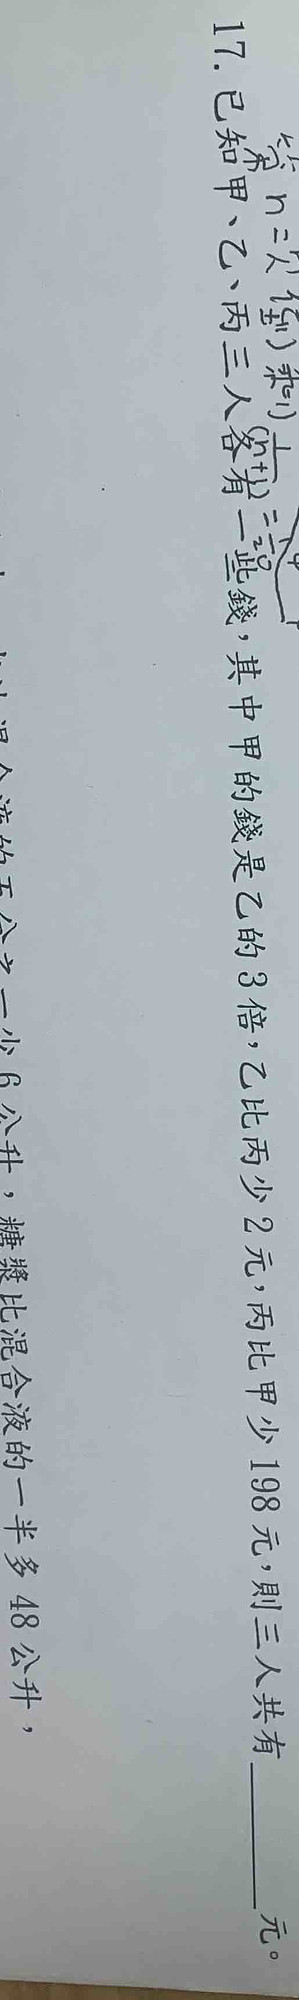 第 n 次 倒) 乘) 1/(n+1) = 1/20
17. 已知甲、乙、丙三人各有一些錢，其中甲的錢是乙的3倍，乙比丙少2元，丙比甲少198元，則三人共有______元。
混合液的五分之一少6公升，糖漿比混合液的一半多48公升，